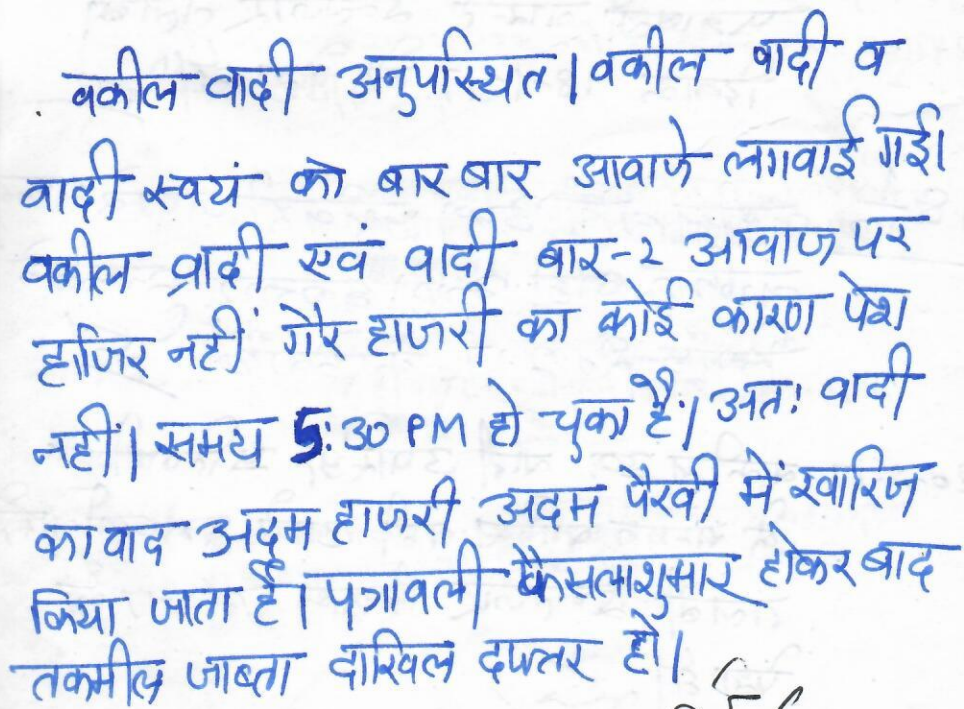 वकील वादी अनुपस्थित। वकील वादी व
वादी स्वयं को बार बार आवाजे लगवाई गई।
वकील वादी एवं वादी बार-२ आवाज पर
हाजिर नहीं गैर हाजरी का कोई कारण पेश
नहीं। समय 5:30 PM हो चुका है। अतः वादी
का वाद अदम हाजरी अदम पैरवी में खारिज
किया जाता है। पत्रावली फैसलाशुमार होकर बाद
तकमील जाब्ता दाखिल दफ्तर हो।